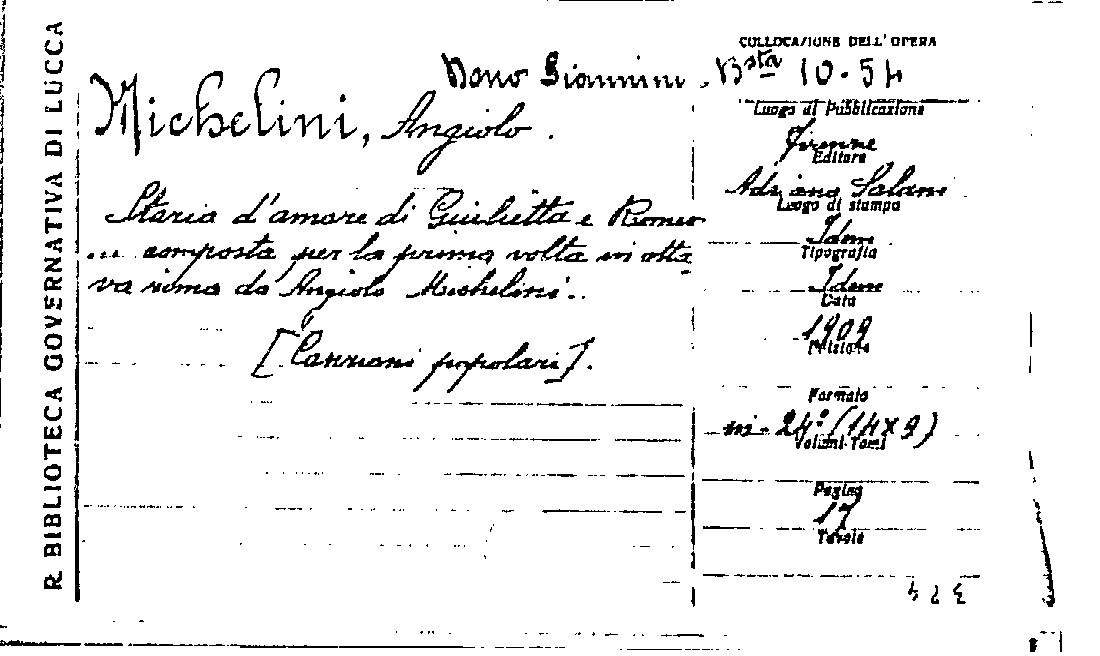 R. BIBLIOTECA GOVERNATIVA DI LUCCA
COLLOCAZIONE DELL'OPERA
Dono Giannini. Bsta 10.54
Michelini, Angiolo.
Storia d'amore di Giulietta e Romeo
... composta per la prima volta in otta
va rima da Angiolo Michelini..
[Canzoni popolari].
Luogo di Pubblicazione
Firenze
Editore
Adriano Salani
Luogo di stampa
Idem
Tipografia
Idem
Data
1909
Formato
in-24° (14x9)
Volumi-Tomi
Pagine
17
Tavole